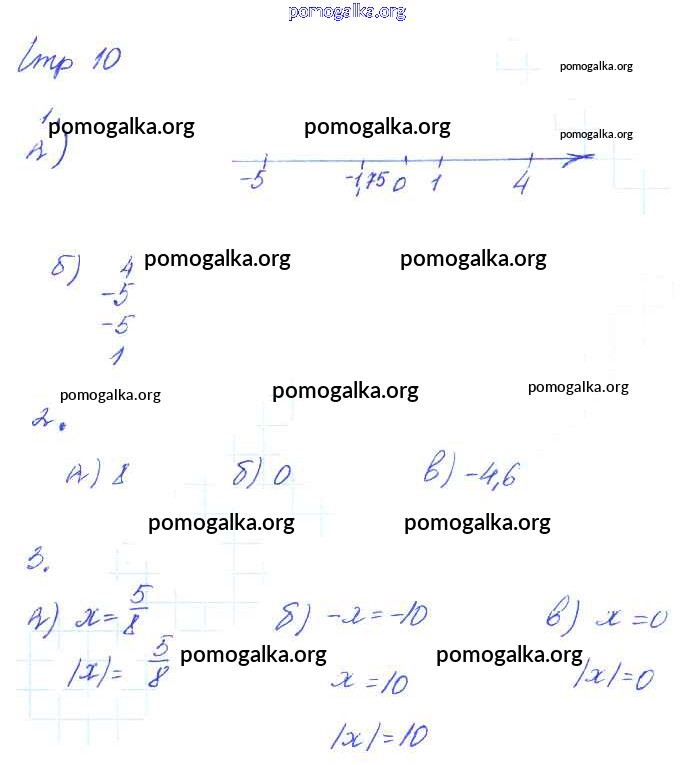 pomogalka.org
Стр 10
pomogalka.org
1.
pomogalka.org pomogalka.org pomogalka.org
А)
-5 -1,75 0 1 4
б) 4 pomogalka.org pomogalka.org
-5
-5
1
pomogalka.org pomogalka.org pomogalka.org
2.
А) 8 б) 0 в) -4,6
pomogalka.org pomogalka.org
3.
А) x = 5/8 б) -x = -10 в) x = 0
|x| = 5/8 pomogalka.org x = 10 pomogalka.org |x| = 0
|x| = 10